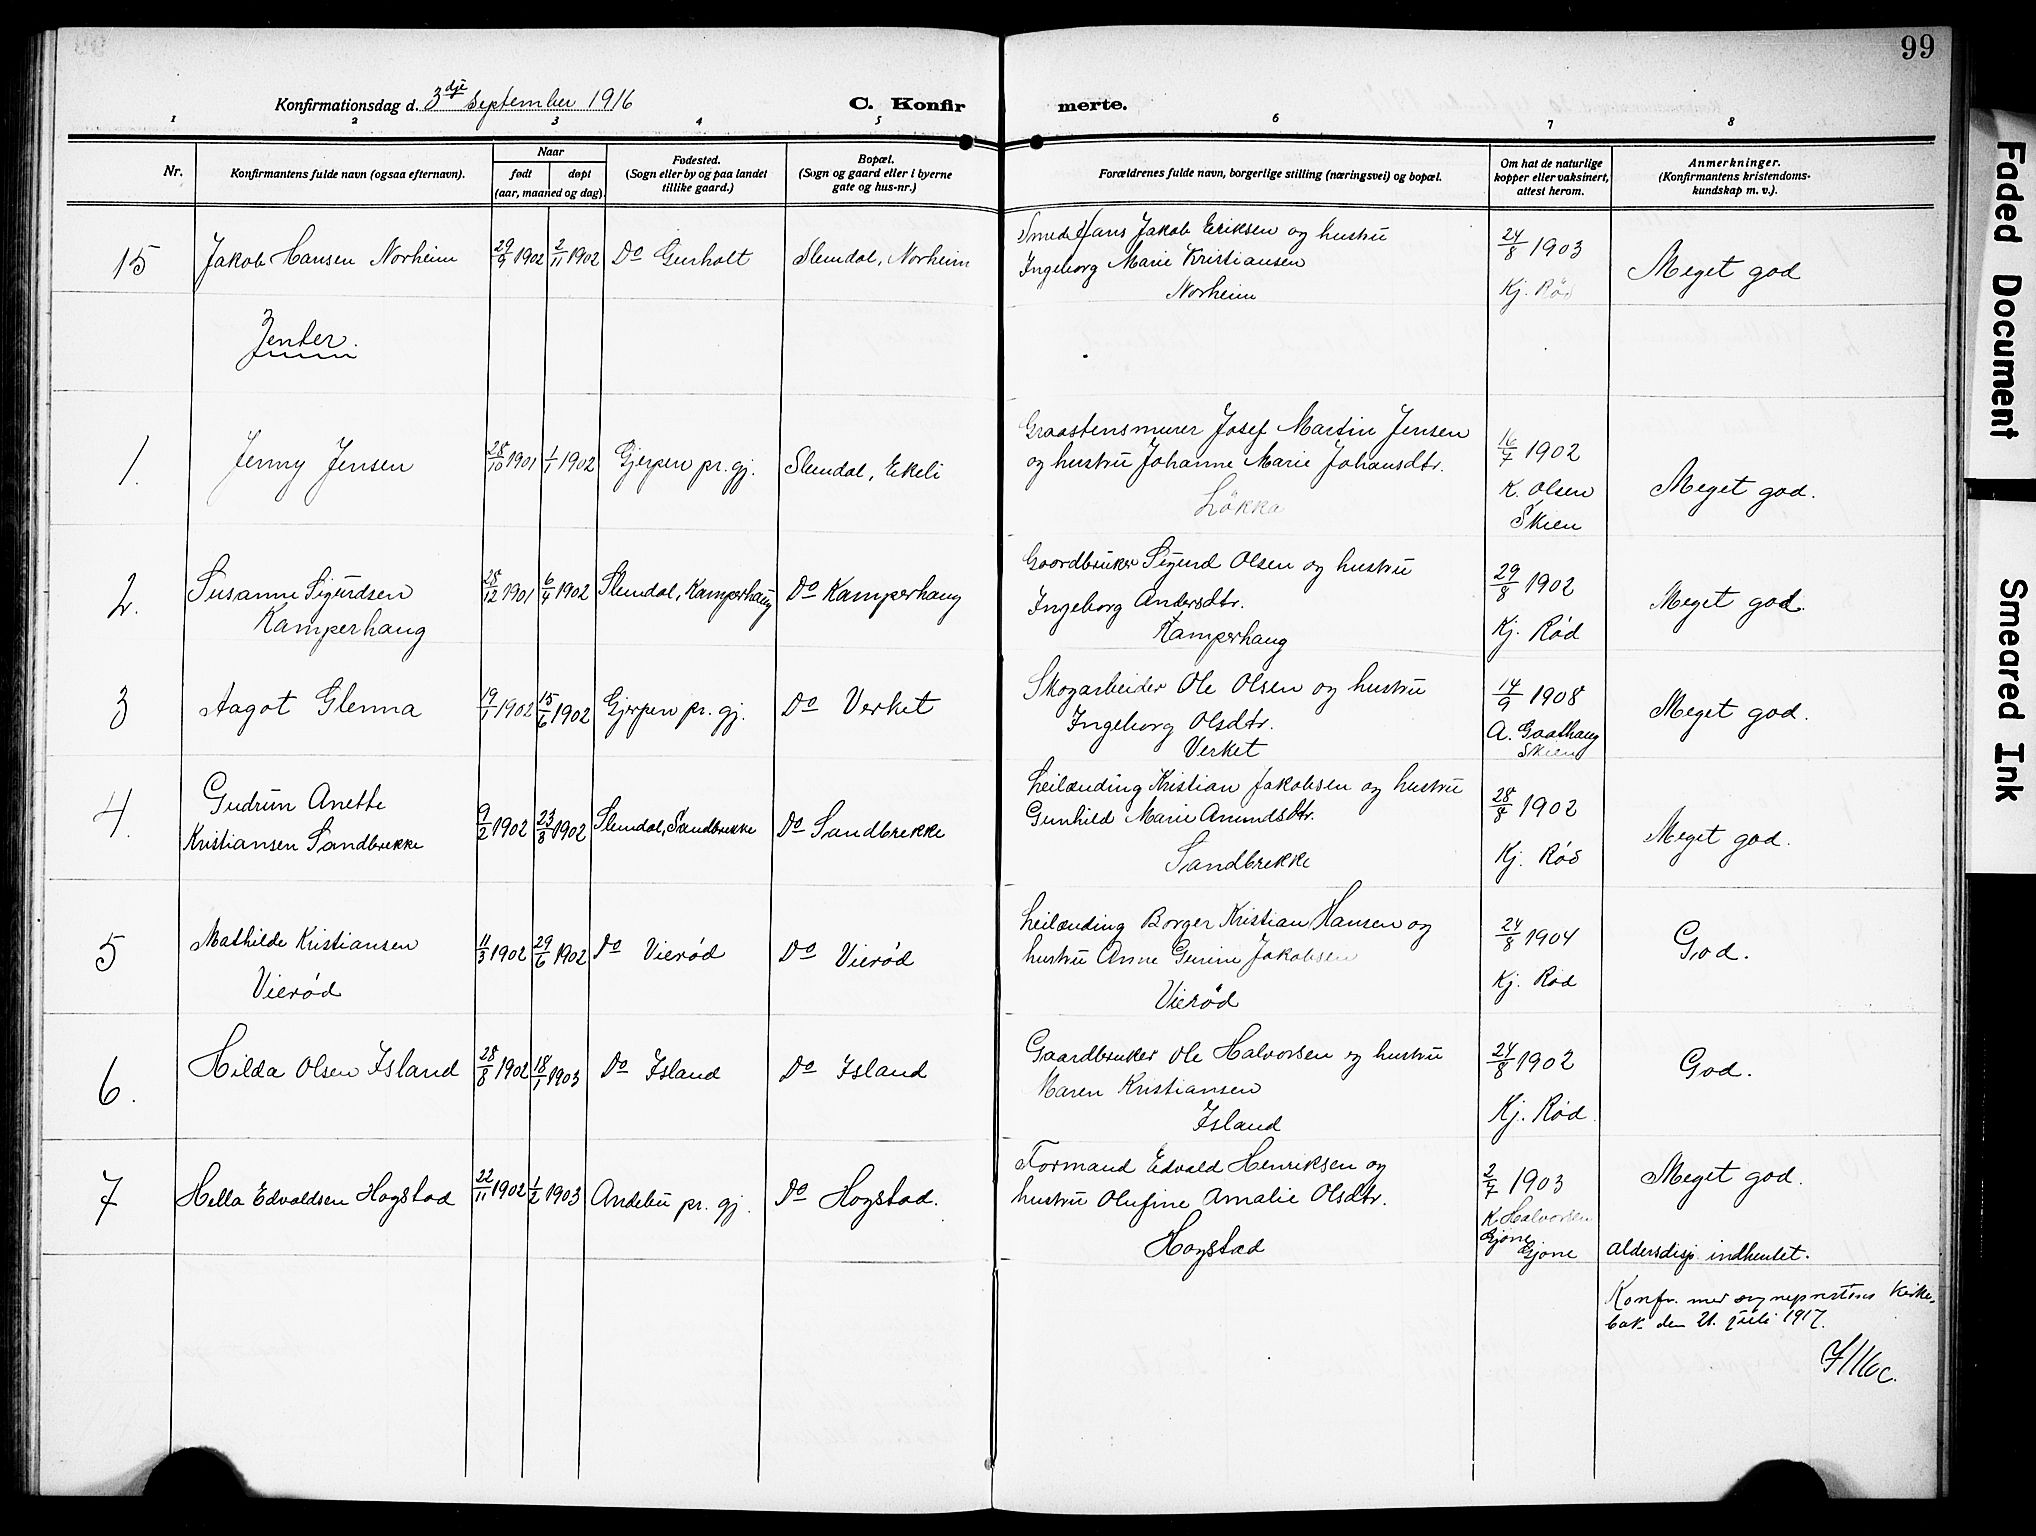 99
Konfirmationsdag d. 3dje September 1916
C. Konfir merte.
1 2 3 4 5 6 7 8
Nr.
Konfirmantens fulde navn (ogsaa efternavn).
Naar
født døpt
(aar, maaned og dag)
Fødested.
(Sogn eller by og paa landet
tillike gaard.)
Bopæl.
(Sogn og gaard eller i byerne
gate og hus-nr.)
Forældrenes fulde navn, borgerlige stilling (næringsvei) og bopæl.
Om hat de naturlige
kopper eller vaksinert,
attest herom.
Anmerkninger.
(Konfirmantens kristendoms-
kundskap m. v.).
15 Jakob Hansen Norheim 29/9 1902 2/11 1902 Do Gurholt Slemdal, Norheim
Smed Hans Jakob Eriksen og hustru
Ingeborg Marie Kristiansen
Norheim
24/8 1903
Kj. Rød
Meget god
Jenter.
1. Jenny Jensen 28/10 1901 1/1 1902 Gjerpen pr. gj. Slemdal, Ekeli
Graastensmurer Josef Martin Jensen
og hustru Johanne Marie Johansdtr.
Løkka
16/7 1902
K. Olsen
Skien
Meget god.
2. Susanne Sigurdsen
Kamperhaug
28/12 1901 6/4 1902 Slemdal, Kamperhaug Do Kamperhaug
Gaardbruker Sigurd Olsen og hustru
Ingeborg Andersdtr.
Kamperhaug
29/8 1902
Kj. Rød
Meget god.
3 Aagot Glenna 19/1 1902 15/6 1902 Gjerpen pr. gj. Do Verket
Skogarbeider Ole Olsen og hustru
Ingeborg Olsdtr.
Verket
14/9 1908
A. Gaathaug
Skien
Meget god.
4. Gudrun Anette
Kristiansen Sandbrekke
9/2 1902 23/3 1902 Slemdal, Sandbrekke Do Sandbrekke
Leilænding Kristian Jakobsen og hustru
Gunhild Marie Amundsdtr.
Sandbrekke
28/8 1902
Kj. Rød
Meget god.
5 Mathilde Kristiansen
Vierød
11/3 1902 29/6 1902 Do Vierød Do Vierød
Leilænding Borger Kristian Hansen og
hustru Anne Gurine Jakobsen
Vierød
24/8 1904
Kj. Rød
God.
6. Hilda Olsen Island 28/8 1902 18/1 1903 Do Island Do Island
Gaardbruker Ole Halvorsen og hustru
Maren Kristiansen
Island
24/8 1902
Kj. Rød.
God.
7 Hella Edvaldsen Hogstad 22/11 1902 1/2 1903 Andebu pr. gj. Do Hogstad.
Formand Edvald Henriksen og
hustru Olufine Amalie Olsdtr.
Hogstad
2/7 1903
K. Halvorsen
Gjone
Gjone
Meget god.
Aldersdisp. indhentet.
Konfr. med sogneprestens Kirke-
bok den 21. juli 1917.
Faded Document
Smeared Ink